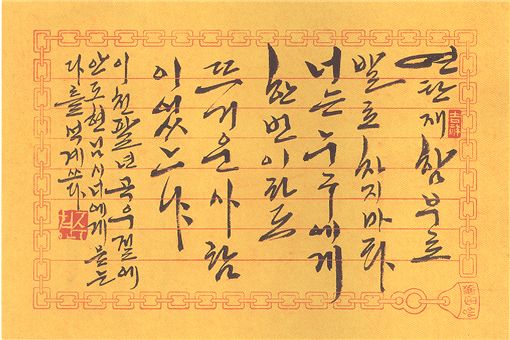 연탄재 함부로
吉祥
발로 차지마라
너는 누구에게
한번이라도
뜨거운 사람
이었느냐
이천팔년 곡우절에
안도현님 시 너에게 묻는
다를 북계 쓰다